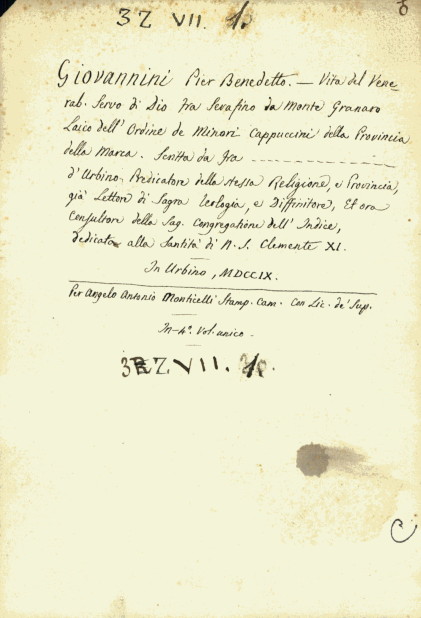 3Z VII. 1.
Giovannini Pier Benedetto. — Vita del Vene-
rab. Servo di Dio Fra Serafino da Monte Granaro
Laico dell'Ordine de Minori Cappuccini della Provincia
della Marca. Scritta da Fra
d'Urbino Predicatore della stessa Religione, e Provincia,
già Lettore di Sagra Teologia, e Diffinitore, Et ora
Consultore della Sag. Congregatione dell'Indice,
dedicata alla Santità di N. S. Clemente XI.
In Urbino, MDCCIX.
Per Angelo Antonio Monticelli Stamp. Cam. Con Lic. de' Sup.
In-4°. Vol. unico.
Z VII. 1.